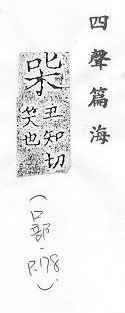 四聲篇海
丑知切
笑也
(口部.P.178)